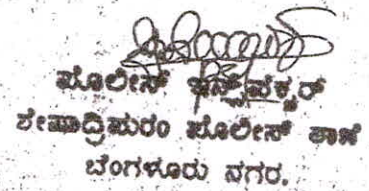 ಪೊಲೀಸ್ ಇನ್ಸ್‌ಪೆಕ್ಟರ್
ಶೇಷಾದ್ರಿಪುರಂ ಪೊಲೀಸ್ ಠಾಣೆ
ಬೆಂಗಳೂರು ನಗರ.